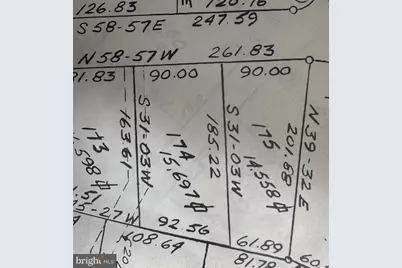 126.83
120.16
S 58-57 E
247.59
N 58-57 W
261.83
90.00
90.00
163.61
S 31-03 W
174
15,697
185.22
S 31-03 W
175
14,558
201.68
N 39-32 E
173
,598
92.56
108.64
61.89
81.79
60.
bright MLS